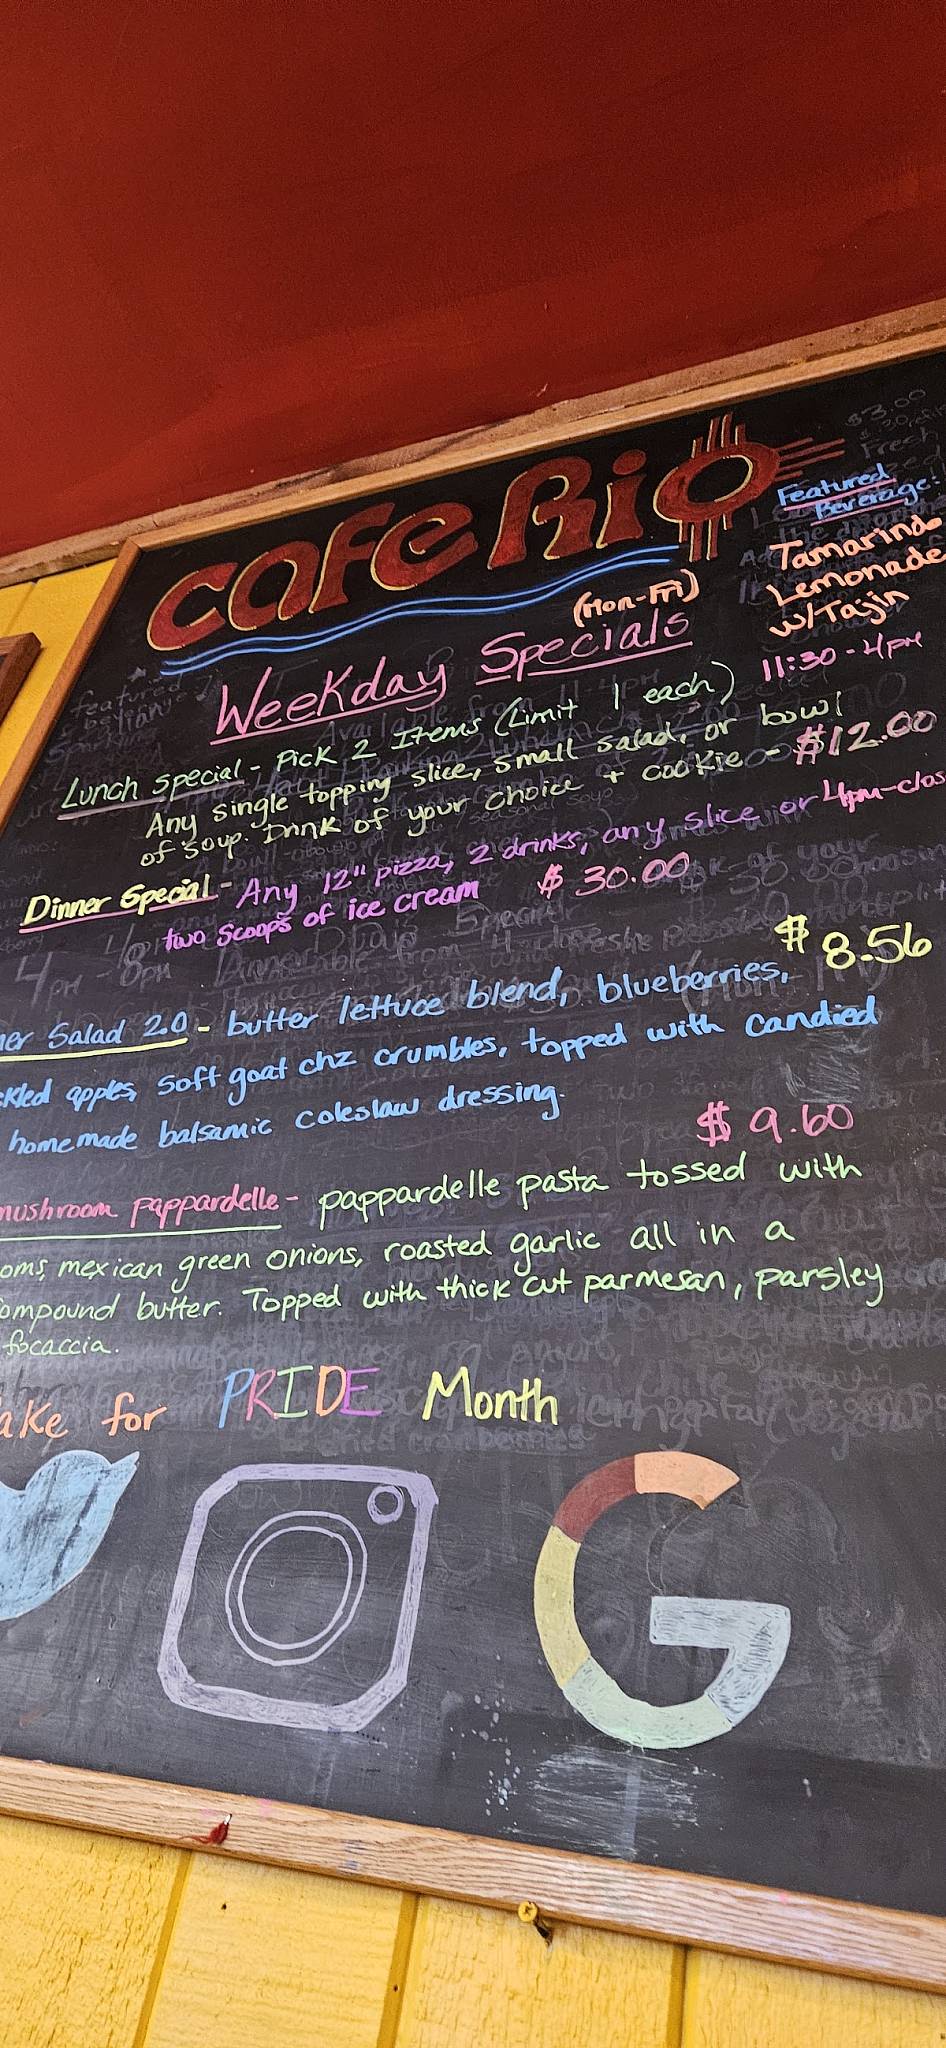 Cafe Rio
Featured
Beverage!
Tamarindo
Lemonade
w/Tajin
(Mon-Fri)
Weekday Specials
11:30-4pm
Lunch Special - Pick 2 Items (Limit 1 each)
Any single topping slice, small salad, or bowl
of soup. Drink of your choice + cookie - $12.00
Dinner Special - Any 12" pizza, 2 drinks, any slice or 4pm-clos
two scoops of ice cream $30.00
$8.56
er Salad 2.0 - butter lettuce blend, blueberries,
ckled apples, soft goat chz crumbles, topped with candied
homemade balsamic coleslaw dressing.
$9.60
mushroom pappardelle - pappardelle pasta tossed with
oms, mexican green onions, roasted garlic all in a
ompound butter. Topped with thick cut parmesan, parsley
focaccia.
ake for PRIDE Month
G